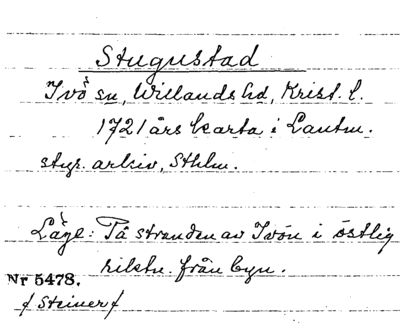 Stugustad
Ivö sn, Willands hd, Krist. l.
1721 års karta i Lantm.
styr. arkiv, Sthlm.
Läge: På stranden av Ivön i östlig
riktn. från byn.
Nr 5478.
/ Steiner /